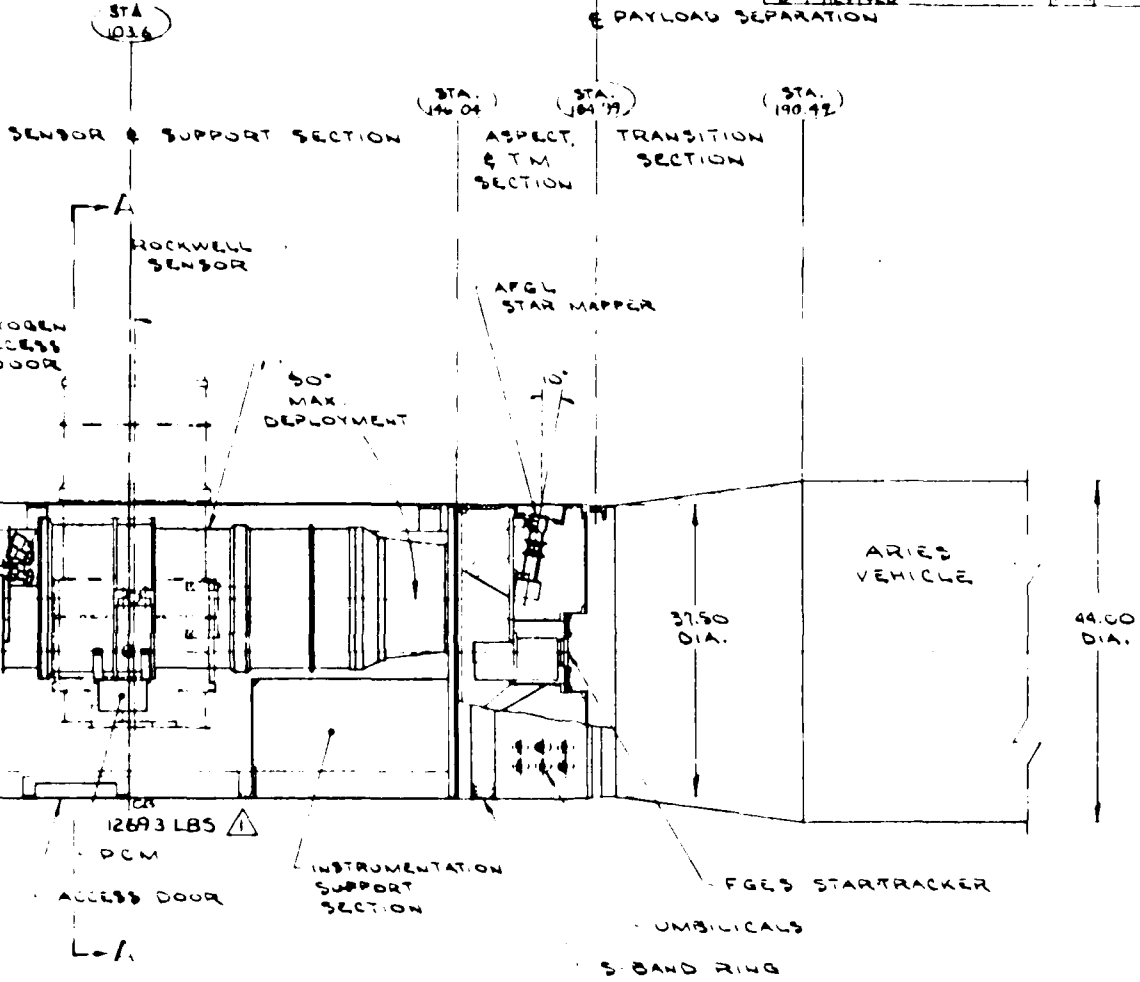 STA
103.6
℄ PAYLOAD SEPARATION
STA.
146.04
STA.
STA.
190.42
SENSOR & SUPPORT SECTION
ASPECT,
& TM
SECTION
TRANSITION
SECTION
A
ROCKWELL
SENSOR
AFGL
STAR MAPPER
DOOR
MAX.
DEPLOYMENT
10°
ARIES
VEHICLE
37.50
DIA.
44.00
DIA.
LBS
1
PCM
ACCESS DOOR
INSTRUMENTATION
SUPPORT
SECTION
FGES STARTRACKER
UMBILICALS
S-BAND RING
A